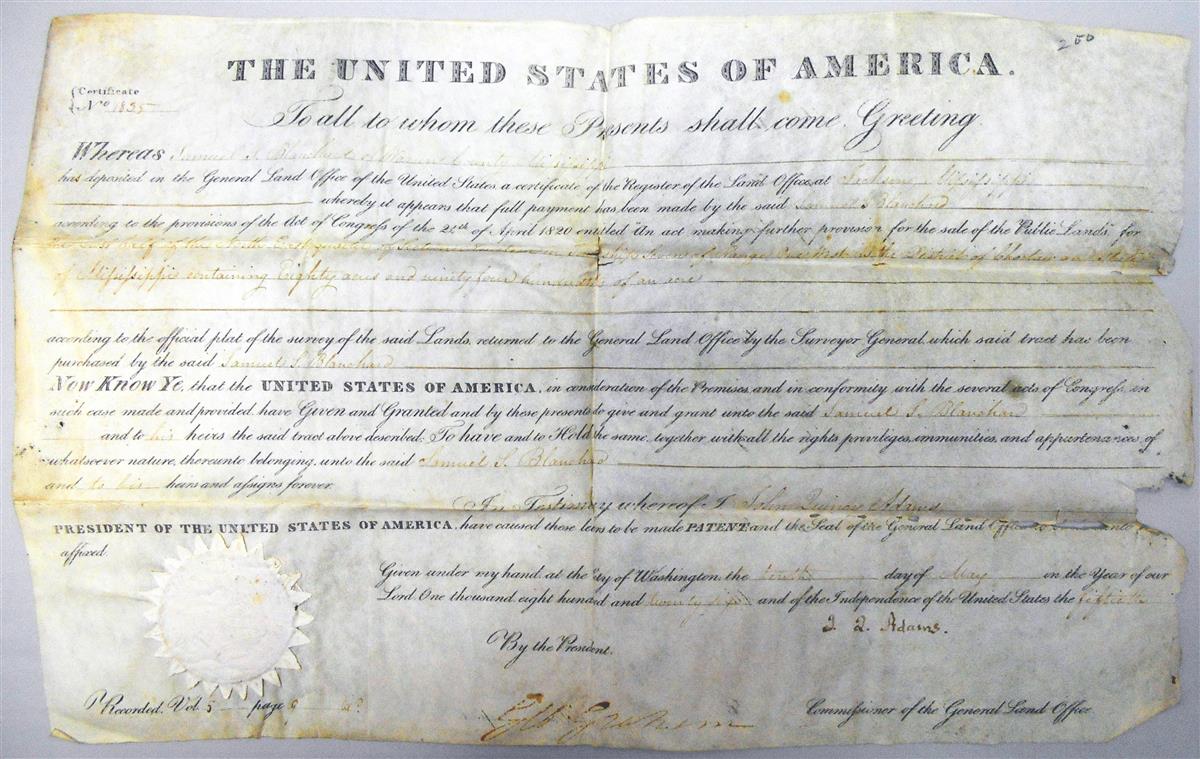 250
THE UNITED STATES OF AMERICA.
Certificate
No 1835
To all to whom these Presents shall come, Greeting
Whereas Samuel S. Blanchard of Warren County Mississippi
has deposited in the General Land Office of the United States a certificate of the Register of the Land Office, at Jackson Mississippi
whereby it appears that full payment has been made by the said Samuel S. Blanchard
according to the provisions of the Act of Congress of the 24th of April 1820 entitled "An act making further provision for the sale of the Public Lands," for
the East half of the of Range in the District of Choctaw and State
of Mississippi containing Eighty acres and ninety four hundredths of an acre
according to the official plat of the survey of the said Lands, returned to the General Land Office by the Surveyor General, which said tract has been
purchased by the said Samuel S. Blanchard
Now Know Ye, that the UNITED STATES OF AMERICA, in consideration of the Premises, and in conformity with the several acts of Congress, in
such case made and provided, have Given and Granted, and by these presents do give and grant unto the said Samuel S. Blanchard
and to his heirs the said tract above described: To have and to Hold the same, together with all the rights, privileges, immunities, and appurtenances, of
whatsoever nature, thereunto belonging, unto the said Samuel S. Blanchard
and to his heirs and assigns forever.
In Testimony whereof I John Quincy Adams
PRESIDENT OF THE UNITED STATES OF AMERICA, have caused these letters to be made PATENT, and the Seal of the General Land Office to hereunto
affixed.
Given under my hand, at the City of Washington, the tenth day of May in the Year of our
Lord One thousand eight hundred and twenty six and of the Independence of the United States the fiftieth
J. Q. Adams.
By the President.
Recorded, Vol. 5 page
Geo Graham Commissioner of the General Land Office